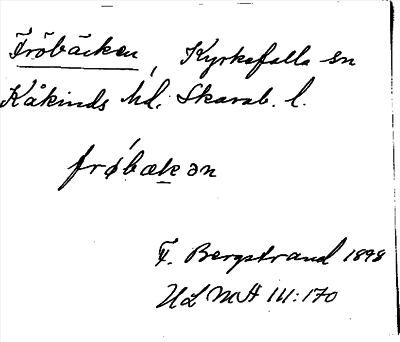 Fröbäcken, Kyrkefalla sn
Kåkinds hd, Skarab. l.
frøbækən
F. Bergstrand 1898
ULMA 111:170